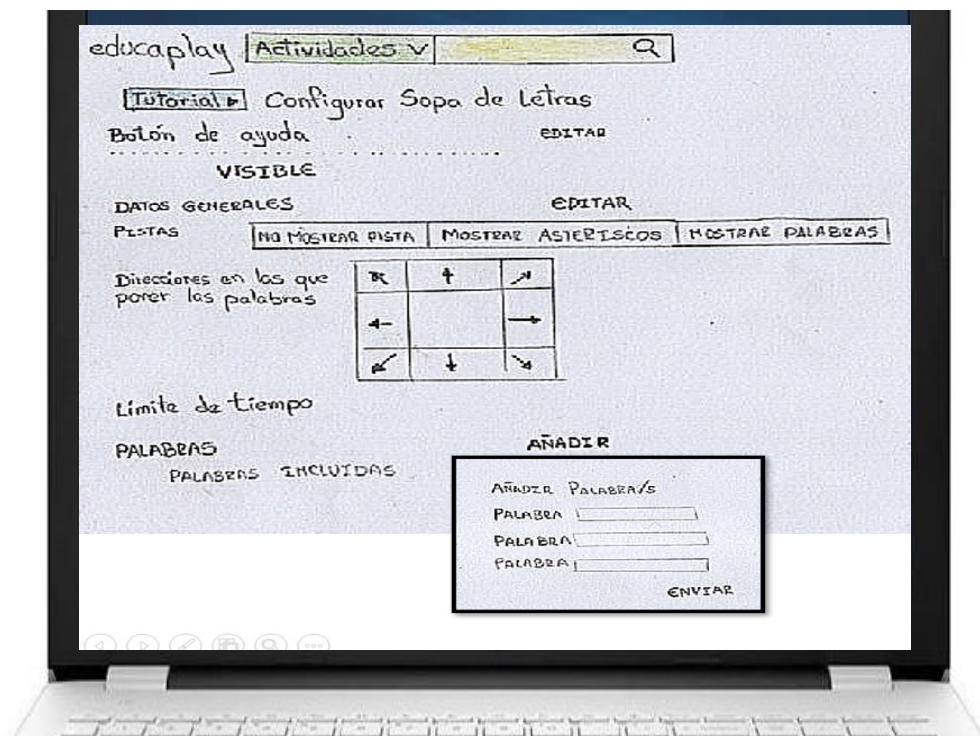 educaplay Actividades
Tutorial Configurar Sopa de Letras
Botón de ayuda EDITAR
VISIBLE
DATOS GENERALES EDITAR
PISTAS NO MOSTRAR PISTA MOSTRAR ASTERISCOS MOSTRAR PALABRAS
Direcciones en las que
poner las palabras
Límite de tiempo
PALABRAS AÑADIR
PALABRAS INCLUIDAS
AÑADIR PALABRA/S
PALABRA
PALABRA
PALABRA
ENVIAR